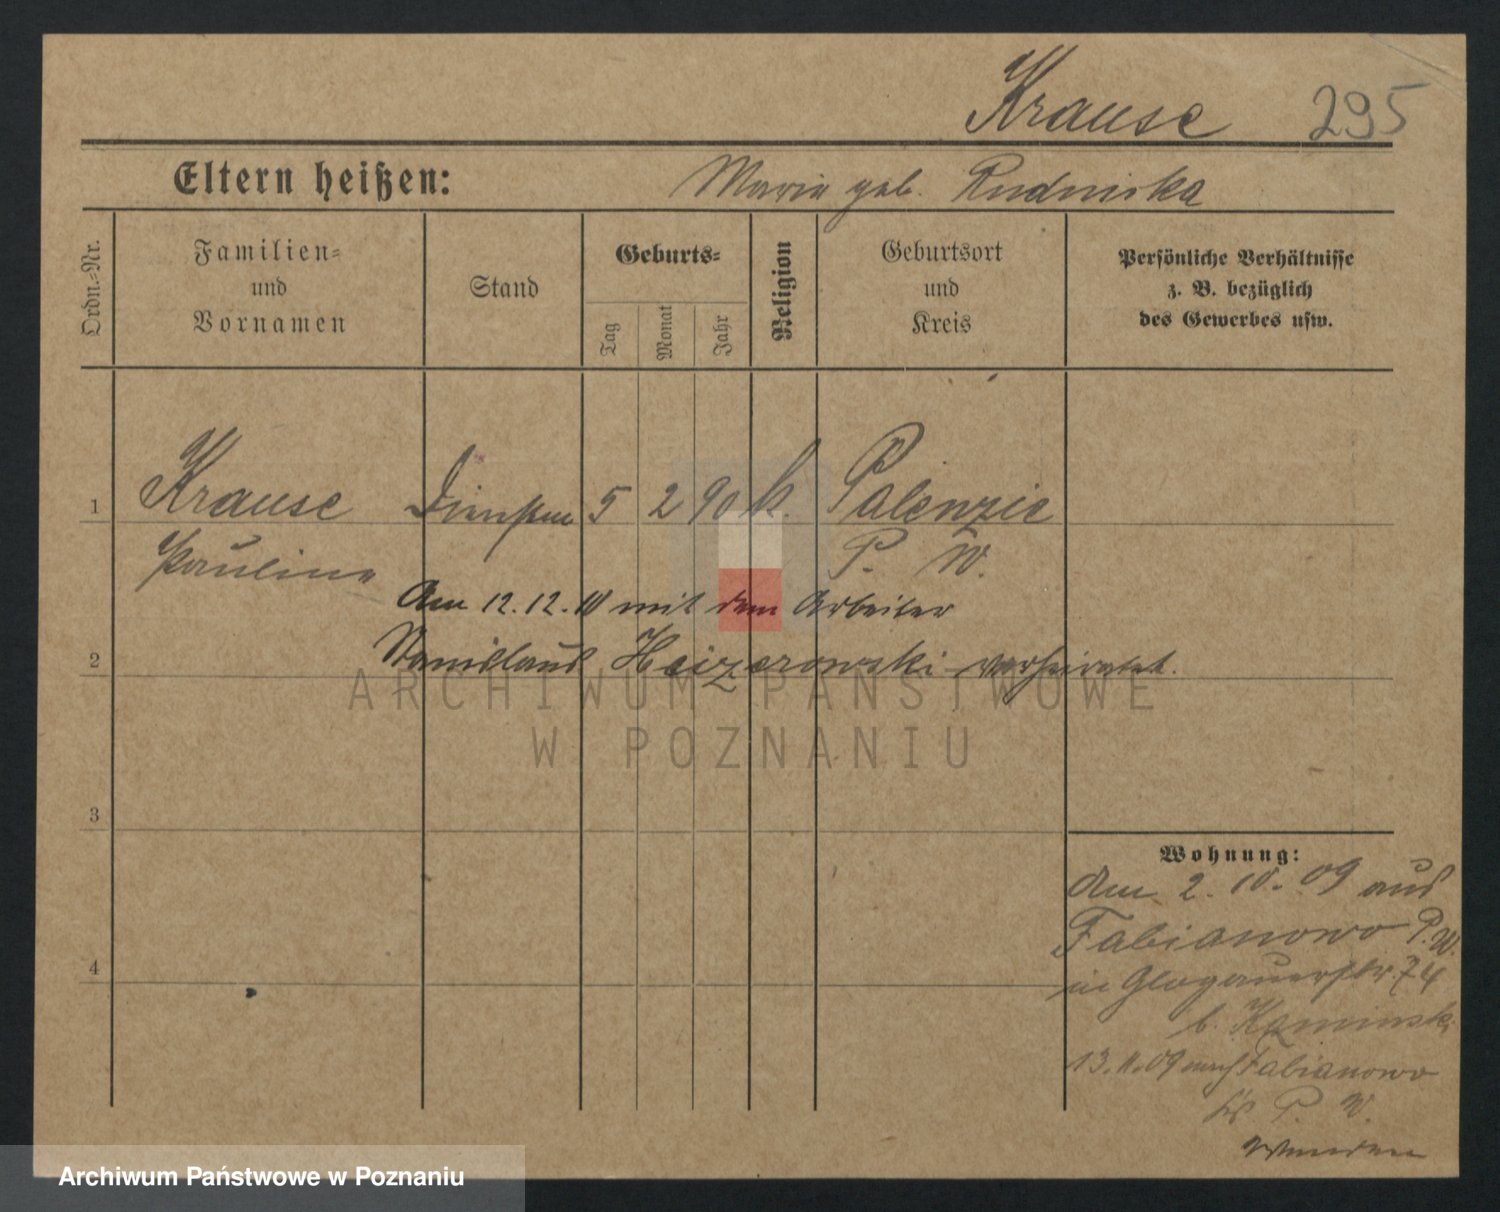 Krause 295
Eltern heißen: Maria geb. Rudniska
Ordn.-Nr.
Familien-
und
Vornamen
Stand
Geburts-
Tag
Monat
Jahr
Religion
Geburtsort
und
Kreis
Persönliche Verhältnisse
z. B. bezüglich
des Gewerbes usw.
1 Krause 5 2 90 k. Palenzie
Pauline P. W.
Am 12.12.10 mit dem Arbeiter
2 Stanislaus Heizerowski verheiratet.
ARCHIWUM PAŃSTWOWE
W POZNANIU
3
4
Wohnung:
Am 2. 10. 09 aus
Fabianowo P. W.
in Glogauerstr. 74
b. Kaminski
13.11.09 nach Fabianowo
P. W.
Archiwum Państwowe w Poznaniu